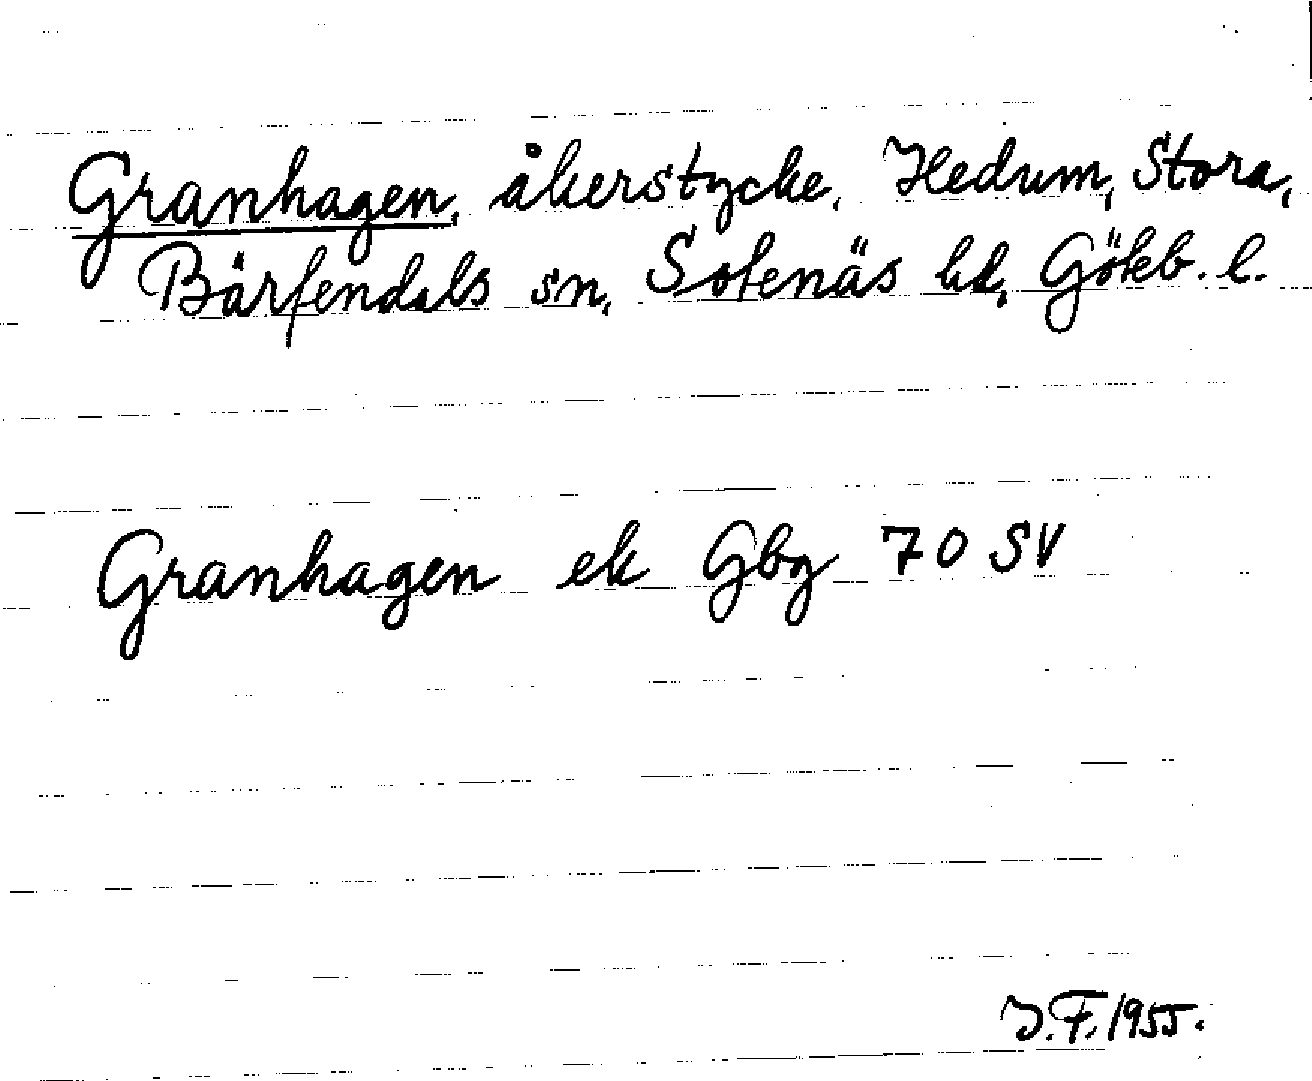 Granhagen, åkerstycke, Hedum, Stora,
Bärfendals sn, Sotenäs hd, Gökb. l.
Granhagen ek Gbg 70 SV
J.F. 1955.